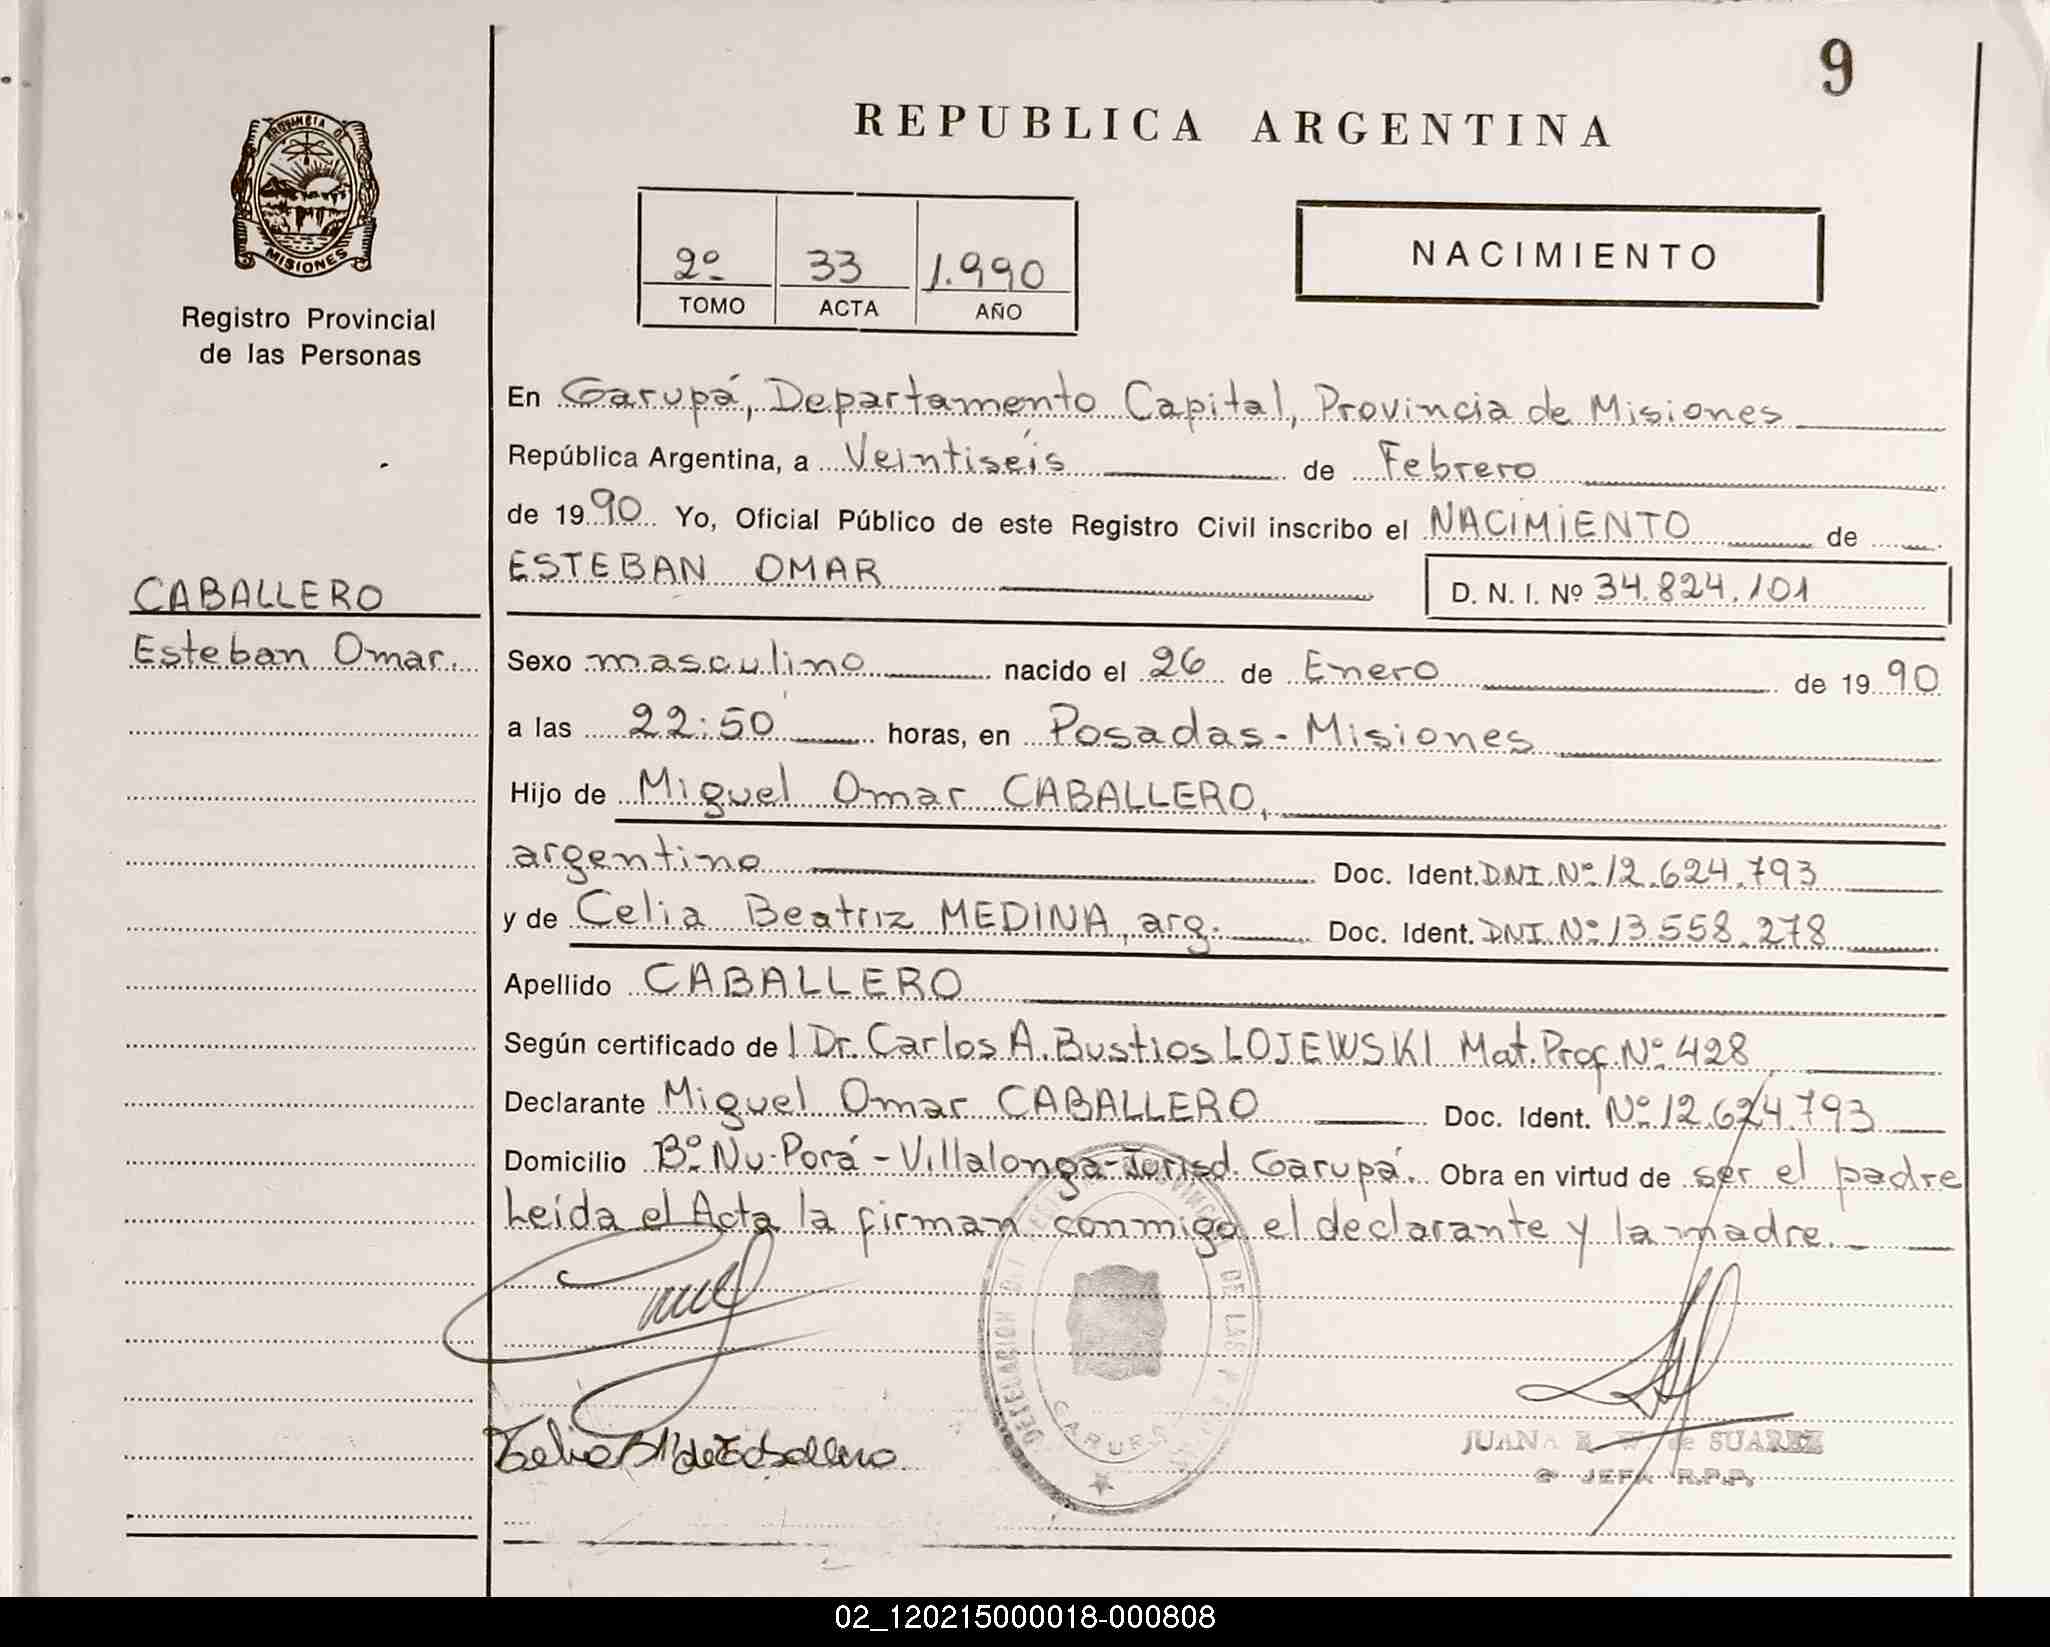 9
REPUBLICA ARGENTINA
PROVINCIA DE
MISIONES
Registro Provincial
de las Personas
2º 33 1.990
TOMO ACTA AÑO
NACIMIENTO
En Garupá, Departamento Capital, Provincia de Misiones
República Argentina, a Veintiséis de Febrero
de 1990 Yo, Oficial Público de este Registro Civil inscribo el NACIMIENTO de
ESTEBAN OMAR
D. N. I. Nº 34.824.101
CABALLERO
Esteban Omar.
Sexo masculino nacido el 26 de Enero de 1990
a las 22:50 horas, en Posadas - Misiones
Hijo de Miguel Omar CABALLERO,
argentino Doc. Ident. DNI. Nº 12.624.793
y de Celia Beatriz MEDINA, arg. Doc. Ident. DNI. Nº 13.558.278
Apellido CABALLERO
Según certificado del Dr. Carlos A. Bustios LOJEWSKI Mat. Prof. Nº 428
Declarante Miguel Omar CABALLERO Doc. Ident. Nº 12.624.793
Domicilio Bº Ñu-Porá - Villalonga - Jurisd. Garupá. Obra en virtud de ser el padre
Leída el Acta la firman conmigo el declarante y la madre.
DE LAS
GARUPA
JUANA E. W. de SUAREZ
JEFA R.P.P.
02_120215000018-000808